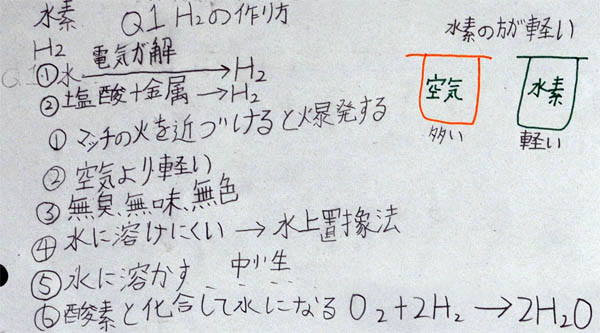 水素 Q1 H₂の作り方
H₂
① 水 電気が解 → H₂
② 塩酸+金属 → H₂
① マッチの火を近づけると爆発する
② 空気より軽い
③ 無臭、無味、無色
④ 水に溶けにくい → 水上置換法
⑤ 水に溶かす 中小生
⑥ 酸素と化合して水になる O₂+2H₂ → 2H₂O
水素の方が軽い
空気 水素
多い 軽い